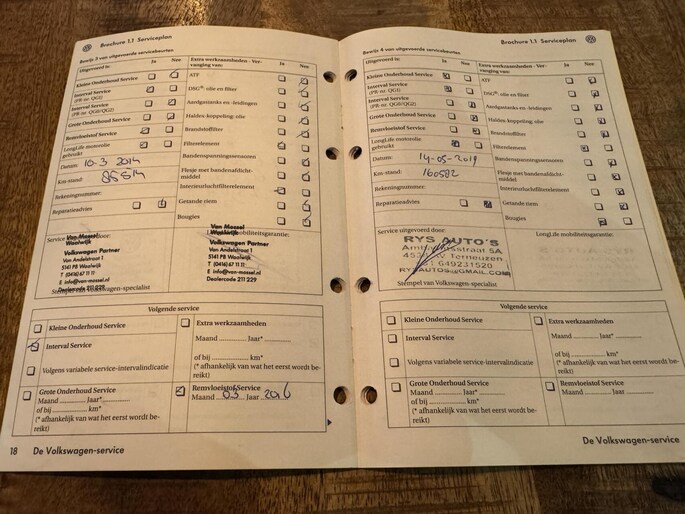 Brochure 1.1 Serviceplan
Bewijs 3 van uitgevoerde servicebeurten
Uitgevoerd is: Ja Nee
Kleine Onderhoud Service
Interval Service
(PR-nr. QG1)
Interval Service
(PR-nr. QG0/QG2)
Grote Onderhoud Service
Remvloeistof Service
LongLife motorolie
gebruikt
Datum: 10-3 2014
Km-stand: 85514
Rekeningnummer:
Reparatieadvies
Extra werkzaamheden - Ver-
vanging van: Ja Nee
ATF
DSG®-olie en filter
Aardgastanks en -leidingen
Haldex-koppeling: olie
Brandstoffilter
Filterelement
Bandenspanningssensoren
Flesje met bandenafdicht-
middel
Interieurluchtfilterelement
Getande riem
Bougies
Service door:
Van Mossel
Waalwijk
Volkswagen Partner
Van Andelstraat 1
5141 PB Waalwijk
T (0416) 67 11 11
E info@van-mossel.nl
Dealercode 211 229
Stempel van Volkswagen-specialist
mobiliteitsgarantie:
Van Mossel
Waalwijk
Volkswagen Partner
Van Andelstraat 1
5141 PB Waalwijk
T (0416) 67 11 11
E info@van-mossel.nl
Dealercode 211 229
Volgende service
Kleine Onderhoud Service
Interval Service
Volgens variabele service-intervalindicatie
Grote Onderhoud Service
Maand Jaar*
of bij km*
(* afhankelijk van wat het eerst wordt be-
reikt)
Extra werkzaamheden
Maand Jaar*
of bij km*
(* afhankelijk van wat het eerst wordt be-
reikt)
Remvloeistof Service
Maand 03 Jaar 2016
18 De Volkswagen-service
Brochure 1.1 Serviceplan
Bewijs 4 van uitgevoerde servicebeurten
Uitgevoerd is: Ja Nee
Kleine Onderhoud Service
Interval Service
(PR-nr. QG1)
Interval Service
(PR-nr. QG0/QG2)
Grote Onderhoud Service
Remvloeistof Service
LongLife motorolie
gebruikt
Datum: 14-05-2019
Km-stand: 160582
Rekeningnummer:
Reparatieadvies
Extra werkzaamheden - Ver-
vanging van: Ja Nee
ATF
DSG®-olie en filter
Aardgastanks en -leidingen
Haldex-koppeling: olie
Brandstoffilter
Filterelement
Bandenspanningssensoren
Flesje met bandenafdicht-
middel
Interieurluchtfilterelement
Getande riem
Bougies
Service uitgevoerd door:
RYS AUTO'S
Terneuzen
649231520
RYSAUTOS@GMAIL.COM
Stempel van Volkswagen-specialist
LongLife mobiliteitsgarantie:
Volgende service
Kleine Onderhoud Service
Interval Service
Volgens variabele service-intervalindicatie
Grote Onderhoud Service
Maand Jaar*
of bij km*
(* afhankelijk van wat het eerst wordt be-
reikt)
Extra werkzaamheden
Maand Jaar*
of bij km*
(* afhankelijk van wat het eerst wordt be-
reikt)
Remvloeistof Service
Maand Jaar
De Volkswagen-service